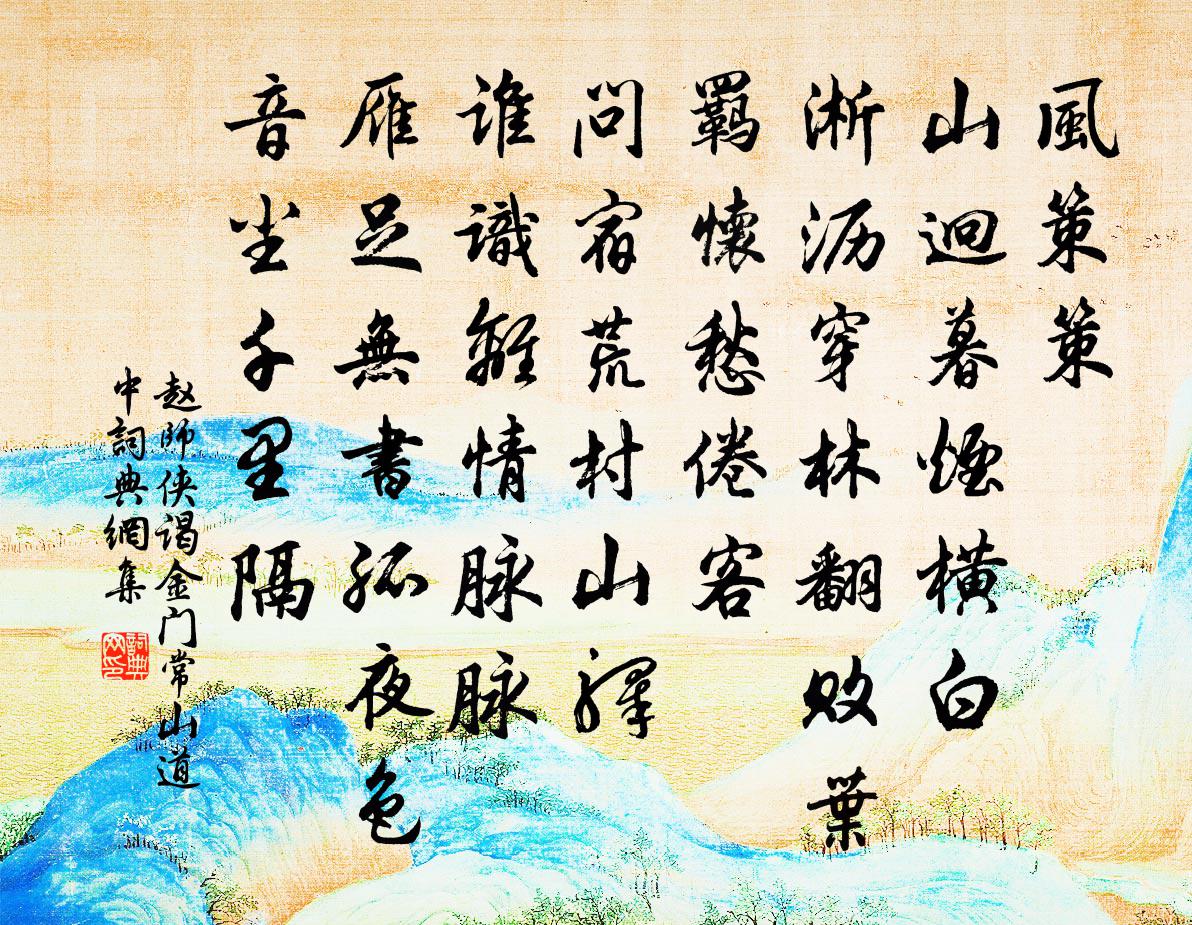 風策策
山迥暮煙橫白
淅沥穿林翻敗葉
羈懷愁倦客
問宿荒村山驛
誰識離情脉脉
雁足無書孤夜色
音尘千里隔
赵師侠谒金门常山道
中詞典網集
詞典网印